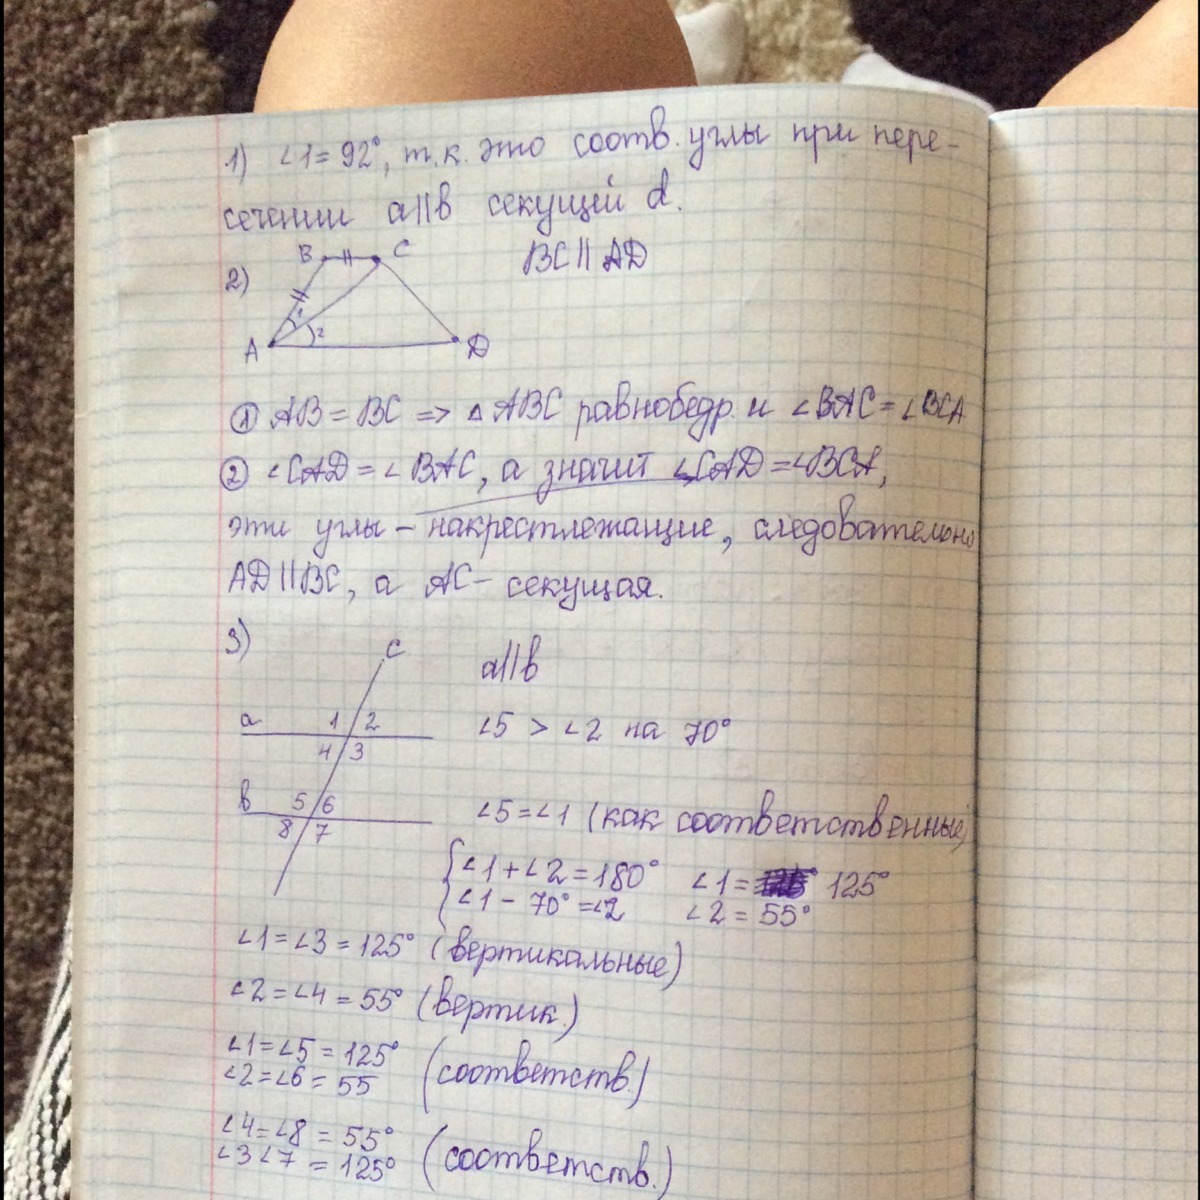 1) ∠1 = 92°, т.к. это соотв. углы при пере-
сечении a||b секущей d.
2)
B C
1
2
A D
BC || AD
① AB = BC => △ABC равнобедр. и ∠BAC = ∠BCA
② ∠CAD = ∠BAC, а значит ∠CAD = ∠BCA,
эти углы – накрестлежащие, следовательно
AD || BC, а AC – секущая.
3)
c
a 1 2
4 3
b 5 6
8 7
a||b
∠5 > ∠2 на 70°
∠5 = ∠1 (как соответственные)
∠1 + ∠2 = 180° ∠1 = 125°
∠1 - 70° = ∠2 ∠2 = 55°
∠1 = ∠3 = 125° (вертикальные)
∠2 = ∠4 = 55° (вертик.)
∠1 = ∠5 = 125°
∠2 = ∠6 = 55 (соответств.)
∠4 = ∠8 = 55°
∠3 ∠7 = 125° (соответств.)